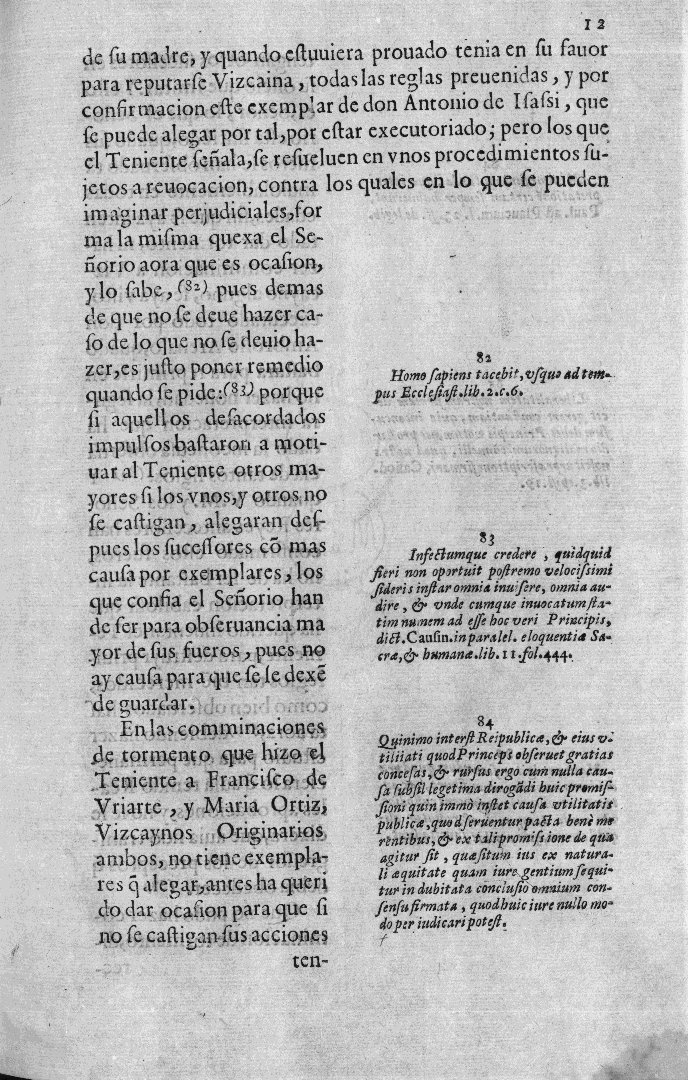 12
de su madre, y quando estuuiera prouado tenia en su fauor
para reputarse Vizcaina, todas las reglas preuenidas, y por
confirmacion este exemplar de don Antonio de Isassi, que
se puede alegar por tal, por estar executoriado; pero los que
el Teniente señala, se resueluen en vnos procedimientos su-
jetos a reuocacion, contra los quales en lo que se pueden
imaginar perjudiciales, for
ma la misma quexa el Se-
ñorio aora que es ocasion,
y lo sabe, (82) pues demas
de que no se deue hazer ca-
so de lo que no se deuio ha-
zer, es justo poner remedio
quando se pide: (83) porque
si aquellos desacordados
impulsos bastaron a moti-
uar al Teniente otros ma-
yores si los vnos, y otros no
se castigan, alegaran des-
pues los sucessores cõ mas
causa por exemplares, los
que confia el Señorio han
de ser para obseruancia ma
yor de sus fueros, pues no
ay causa para que se le dexẽ
de guardar.
En las comminaciones
de tormento que hizo el
Teniente a Francisco de
Vriarte, y Maria Ortiz,
Vizcaynos Originarios
ambos, no tiene exempla-
res q̃ alegar, antes ha queri
do dar ocasion para que si
no se castigan sus acciones
ten-
82
Homo sapiens tacebit, vsquo ad tem-
pus Ecclesiast. lib. 2. c. 6.
83
Infectumque credere, quidquid
fieri non oportuit postremo velocissimi
sideris instar omnia inuisere, omnia au-
dire, & vnde cumque inuocatum sta-
tim numem ad esse hoc veri Principis,
dict. Causin. in paralel. eloquentiæ Sa-
cræ, & humanæ. lib. 11. fol. 444.
84
Quinimo interst Reipublicæ, & eius v-
tiliiati quod Princeps obseruet gratias
concesas, & rursus ergo cum nulla cau-
sa subsil legetima dirogādi huic promis-
sioni quin immò instet causa vtilitatis
publicæ, quod seruentur pacta bene me
rentibus, & ex tali promissione de qua
agitur sit, quæsitum ius ex natura-
li æquitate quam iure gentium sequi-
tur in dubitata conclusio omnium con-
sensu firmata, quod huic iure nullo mo-
do per iudicari potest.